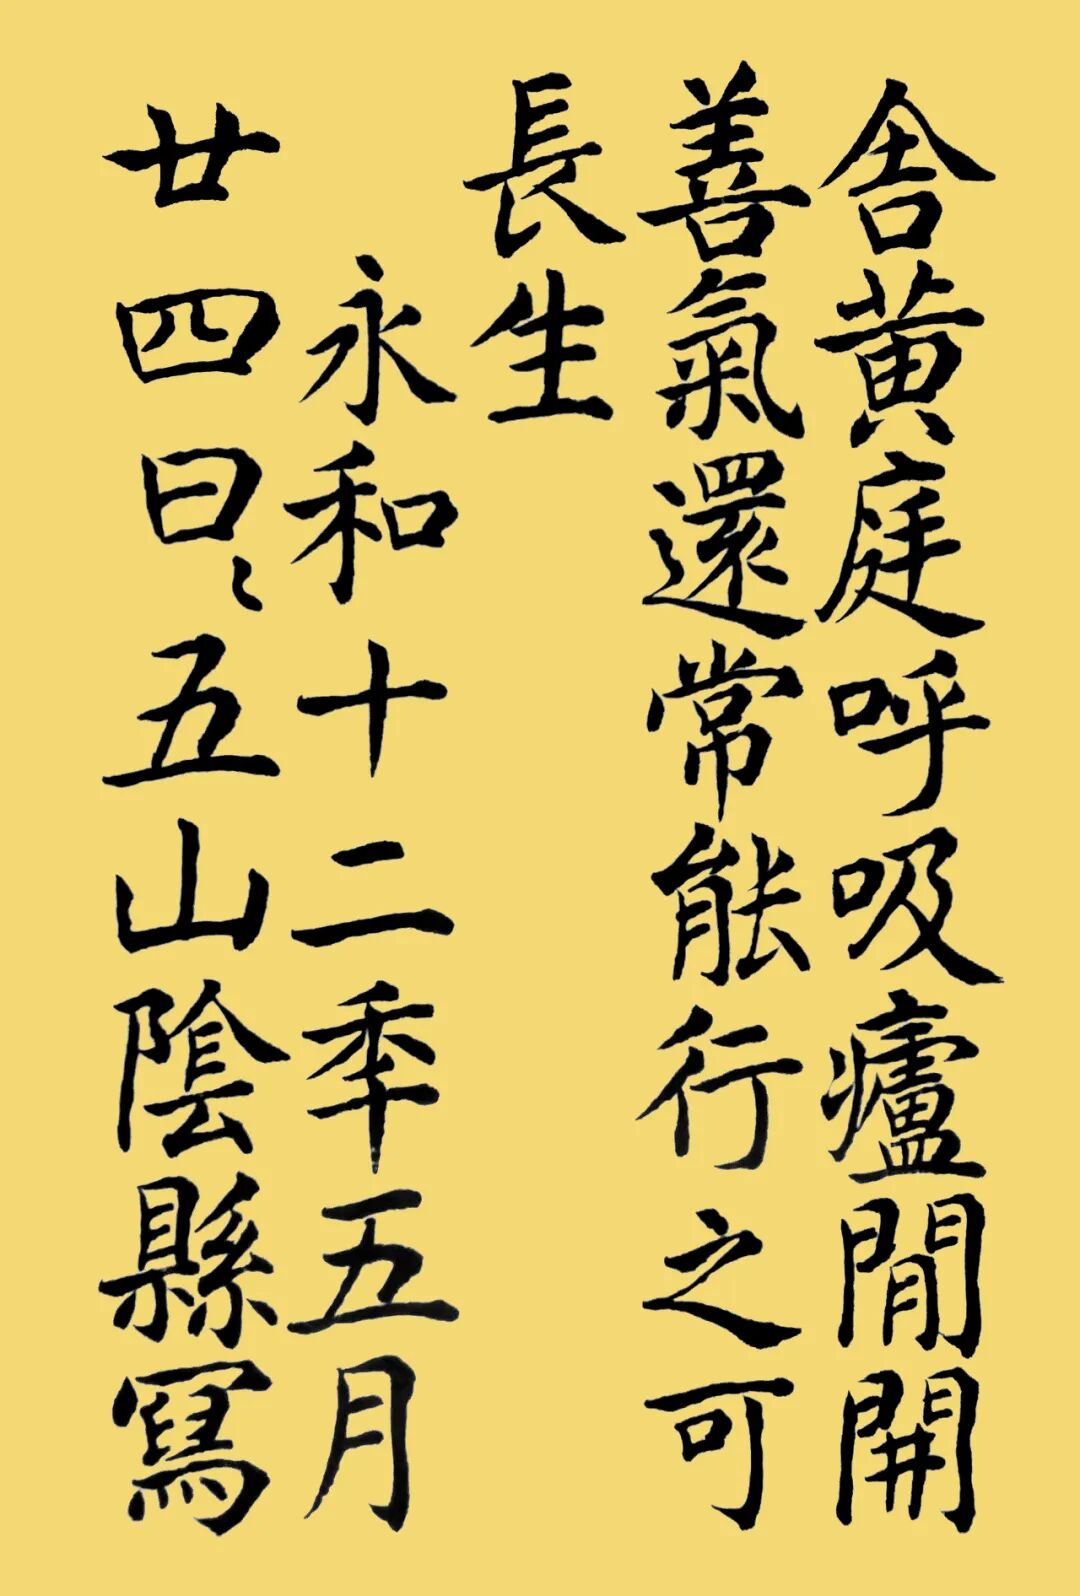 舍黃庭呼吸廬閒開
善氣還常能行之可
長生
永和十二年五月
廿四日五山陰縣寫